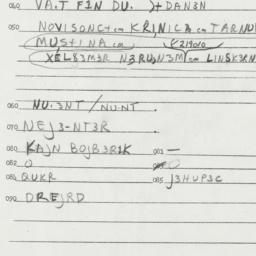 040 VA.T FIN DU. )+DAN3N
050 NOVISONC+cm KRINICA cm TARNU
MUSTINA cm
XELB3M3R N3RUJN3M cm LINSK3RN
060 NU.3NT / NU.NT.
070 NEJ3-NT3R
080 KAJN BOJB3RIK 081 —
082 O O
084 QUKR 085 J3HUP3C
090 DREJRD